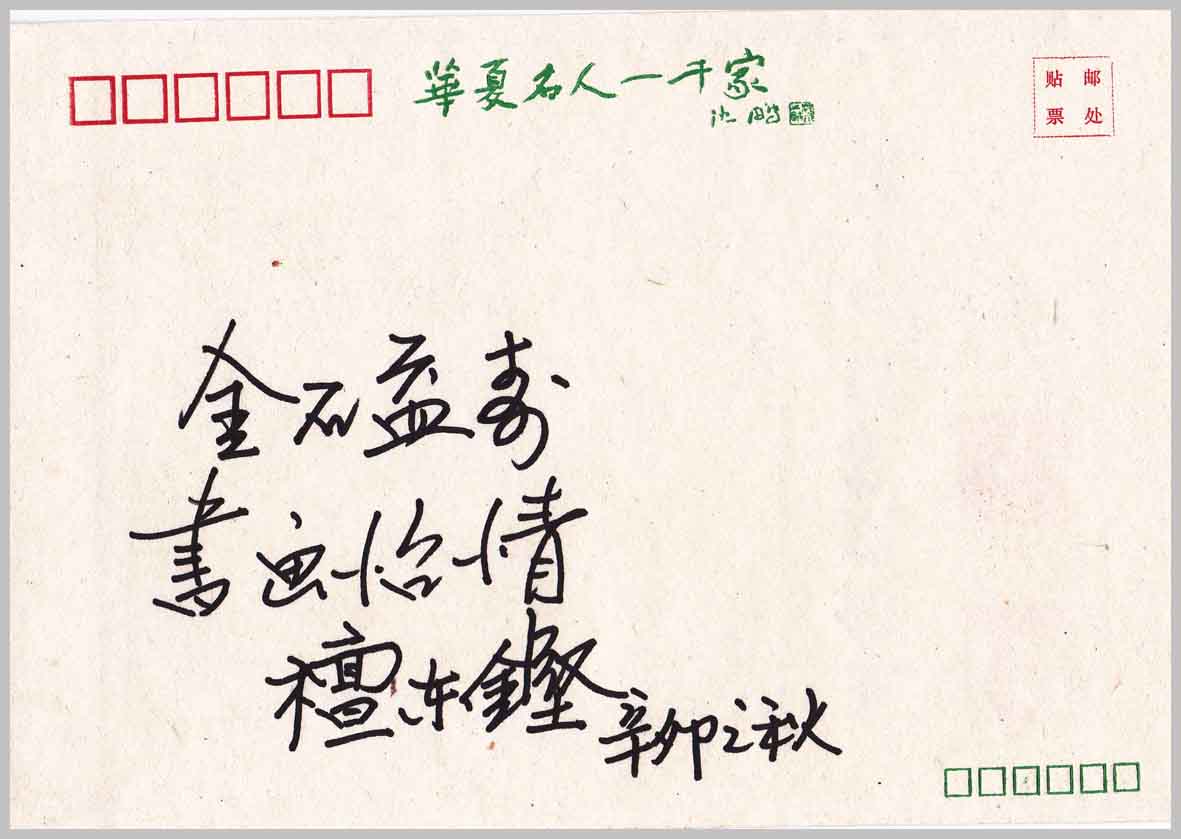 華夏名人一千家
沈鹏
贴 邮
票 处
金石益寿
書画怡情
檀东鏗
辛卯之秋